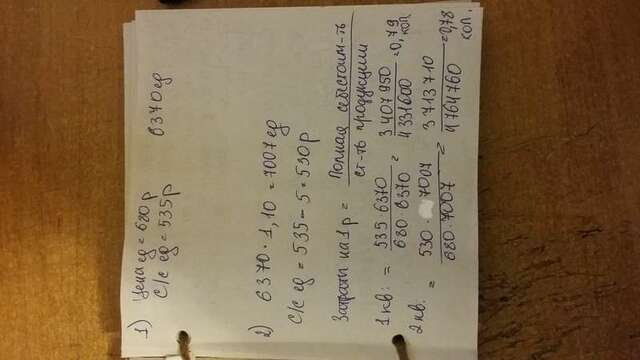 1) Цена ед = 680 р
С/с ед = 535 р 6370 ед
2) 6370 · 1,10 = 7007 ед
С/с ед = 535 - 5 = 530 р
Затраты на 1 р = Полная себстоим-ть / ст-ть продукции
1 кв: = 535·6370 / 680·6370 = 3407950 / 4331600 = 0,79 коп
2 кв: = 530·7007 / 680·7007 = 3713710 / 4764760 = 0,78 коп.